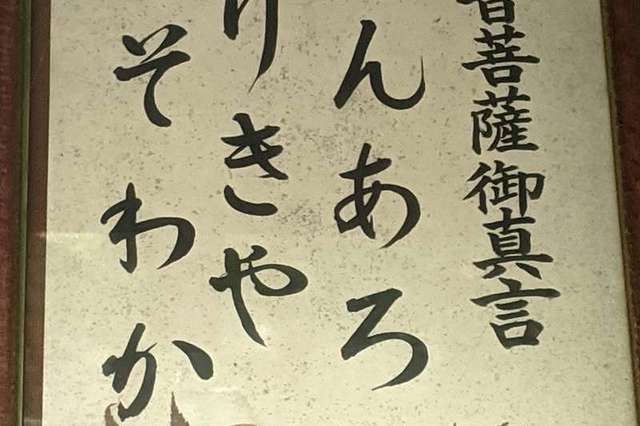 音菩薩御真言
んあろ
りきや
そわか